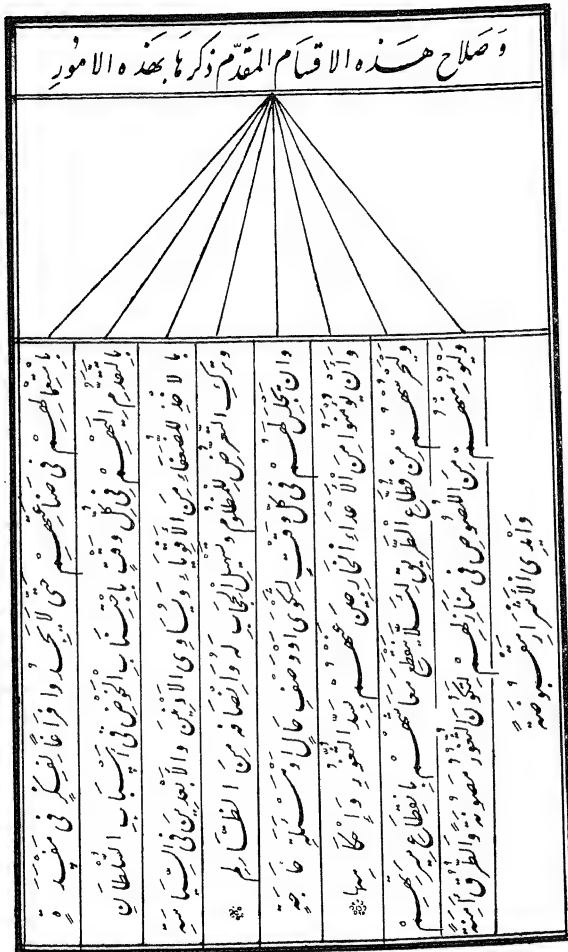 وَصَلاح هَذه الاقسَام المقدّم ذكرهَا بهَذه الامُورِ
بِاسْتِعْمَالِهِمْ فى صَنَاعَتِهِمْ حَتى لَا يَجِدُوا فَراغًا لِفِكْرٍ فى مَفْسَدَةٍ
بِالتَّقَدُّمِ اِلَيْهِمْ فِى كُلِّ وَقْتٍ بِاجْتِنَابِ الخَوْضِ فى اَسْبَابِ السُّلْطَانِ
بِالاخْذِ لِلضُّعَفَاءِ مِنَ الاَقْوِيَاءِ وَيُسَاوِى الاَدْنَيْنَ وَالاَبْعَدِيْنَ فى السِّيَاسَةِ
وَتَرْكِ التَّعَرُّضِ لِلْمَظْلُومِ وَتَسْهِيلِ الحِجَابِ لَهُ وَاِنْصَافِهِ مِنَ الظَّالِمِ
وَان يَجْلِسَ لَهُمْ فى كُلِّ وَقْتٍ لِشَكْوَى اَوْ وَصْفِ حَالٍ اَوْ مَسْئَلَةِ حَاجَةٍ
وَأَنْ يُؤْمَنُوا مِنَ الْأَعْدَاءِ الخَارِجِينَ عَنْهُمْ بِسَدِّ الثُّغُورِ وَإِحْكَامِهَا
وَيَحْرُسَهُمْ مِنْ قُطَّاعِ الطَّرِيقِ لِئَلَّا يَنْقَطِعَ مَعَاشُهُمْ بِانْقِطَاعِ مِيرَتِهِمْ
وَلِيُؤْمِنَهُمْ مِنَ اللُّصُوصِ فى مَنَازِلِهِمْ لِتَكُونَ الثُّغُورُ مَصُونَةً وَالطُّرُقُ آمِنَةً
وَاَيْدِى الْأَشْرَارِ مَقْبُوضَةً